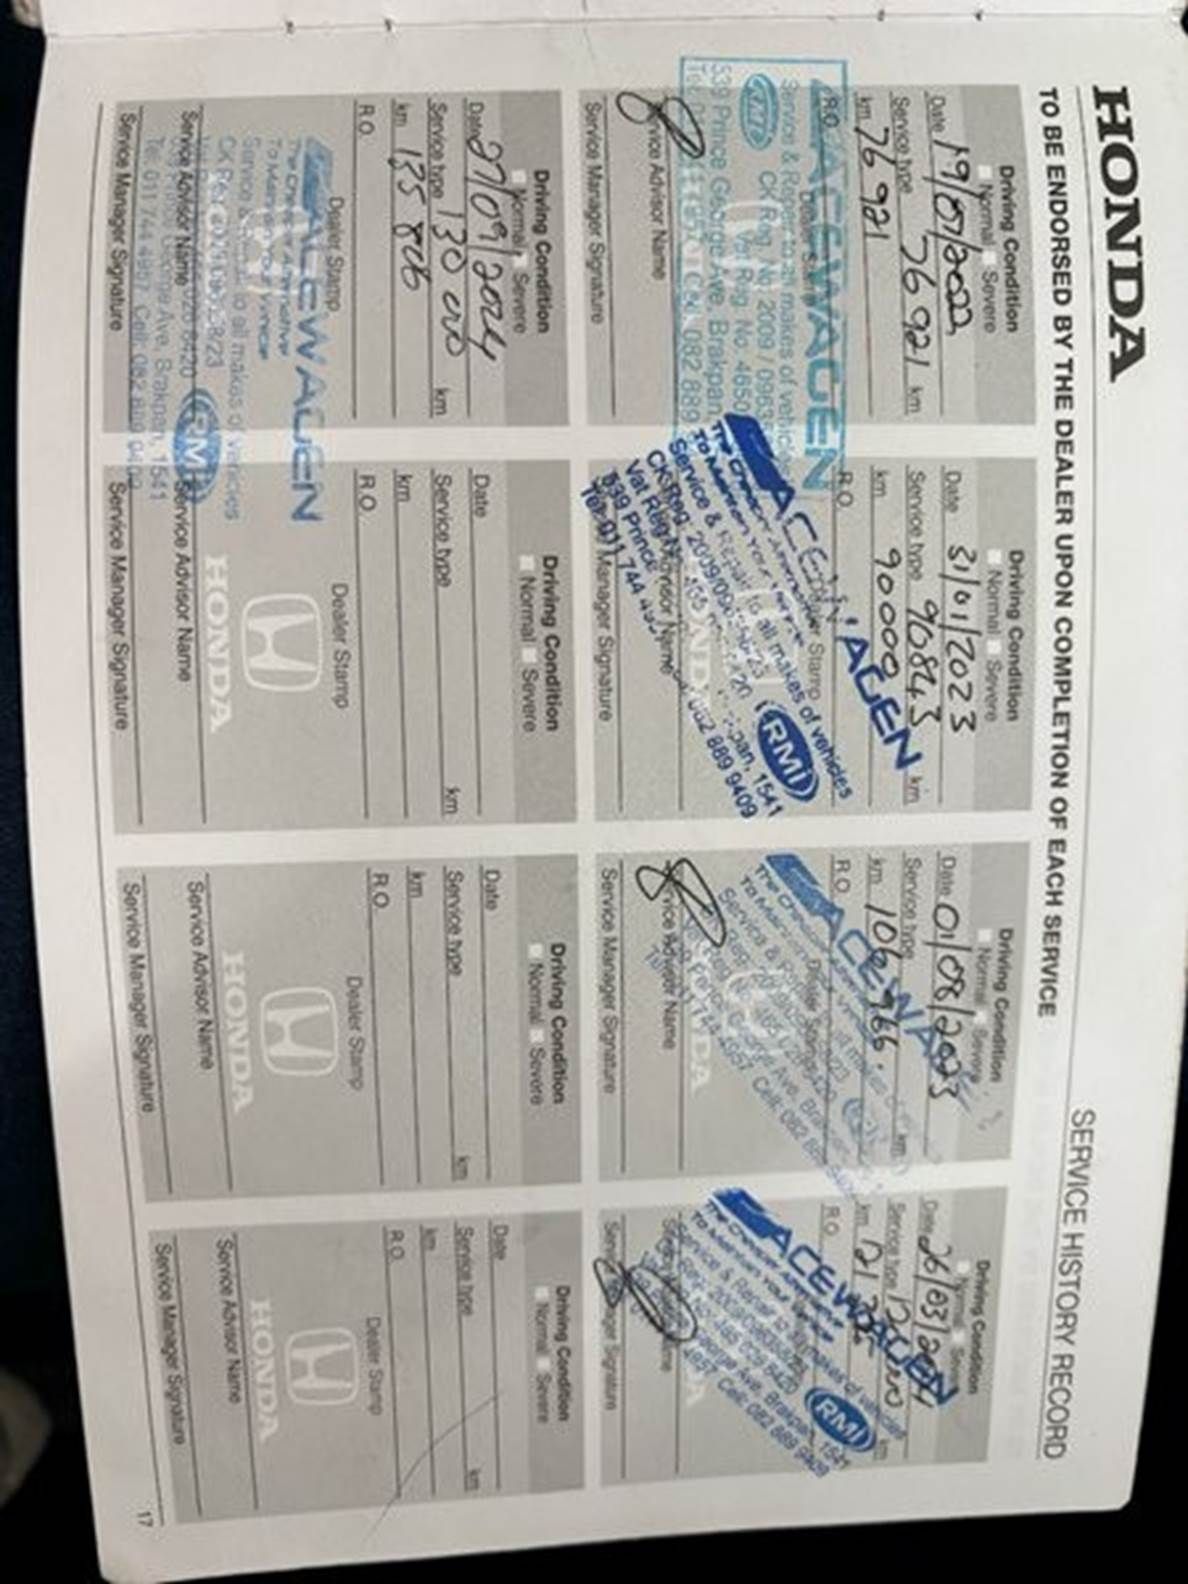 HONDA
SERVICE HISTORY RECORD
TO BE ENDORSED BY THE DEALER UPON COMPLETION OF EACH SERVICE
Driving Condition
Normal Severe
Date 19/07/2022
Service type 76 921 km
km 76 921
R.O.
Dealer Stamp
ACEWAGEN
Service & Repair to all makes of vehicles
RMI
CK Reg. No. 2009 / 0963
Vat Reg. No. 4650
539 Prince George Ave, Brakpan,
Tel: 082 889
Service Advisor Name
Service Manager Signature
Driving Condition
Normal Severe
Date 31/01/2023
Service type 90843 km
km 90000
R.O.
Dealer Stamp
ACEWAGEN
The Champion Alternative
To Maintain Your Vehicle
Service & Repair to all makes of vehicles
RMI
CK Reg. 2009/096
Vat Reg.
539 Prince pan, 1541
Tel: 011 744 082 889 9409
Service Advisor Name
Service Manager Signature
Driving Condition
Normal Severe
Date 01/08/2023
Service type km
km 106 966.
R.O.
Dealer Stamp
ACEWAGEN
To Maintain Your Vehicle
Service & Repair all makes
George Ave, Brakpan
744 4957 Cell: 082 889 9409
Service Advisor Name
Service Manager Signature
Driving Condition
Normal Severe
Date 26/03/2024
Service type 120 000 km
km 121
R.O.
ACEWAGEN
To Maintain Your Vehicle
Service & Repair to all makes of vehicles
RMI
George Ave, Brakpan, 1541
4957 Cell: 082 889 9409
Service Manager Signature
Driving Condition
Normal Severe
Date 27/09/2024
Service type 130 000 km
km 135 806
R.O.
Dealer Stamp
ACEWAGEN
To Maintain Your Vehicle
Service & Repair to all makes of vehicles
RMI
CK Reg.
George Ave, Brakpan, 1541
Tel: 011 744 4957, Cell: 082 889 9409
Service Advisor Name
Service Manager Signature
Driving Condition
Normal Severe
Date
Service type km
km
R.O.
Dealer Stamp
HONDA
Service Advisor Name
Service Manager Signature
Driving Condition
Normal Severe
Date
Service type km
km
R.O.
Dealer Stamp
HONDA
Service Advisor Name
Service Manager Signature
Driving Condition
Normal Severe
Date
Service type km
km
R.O.
Dealer Stamp
HONDA
Service Advisor Name
Service Manager Signature
17